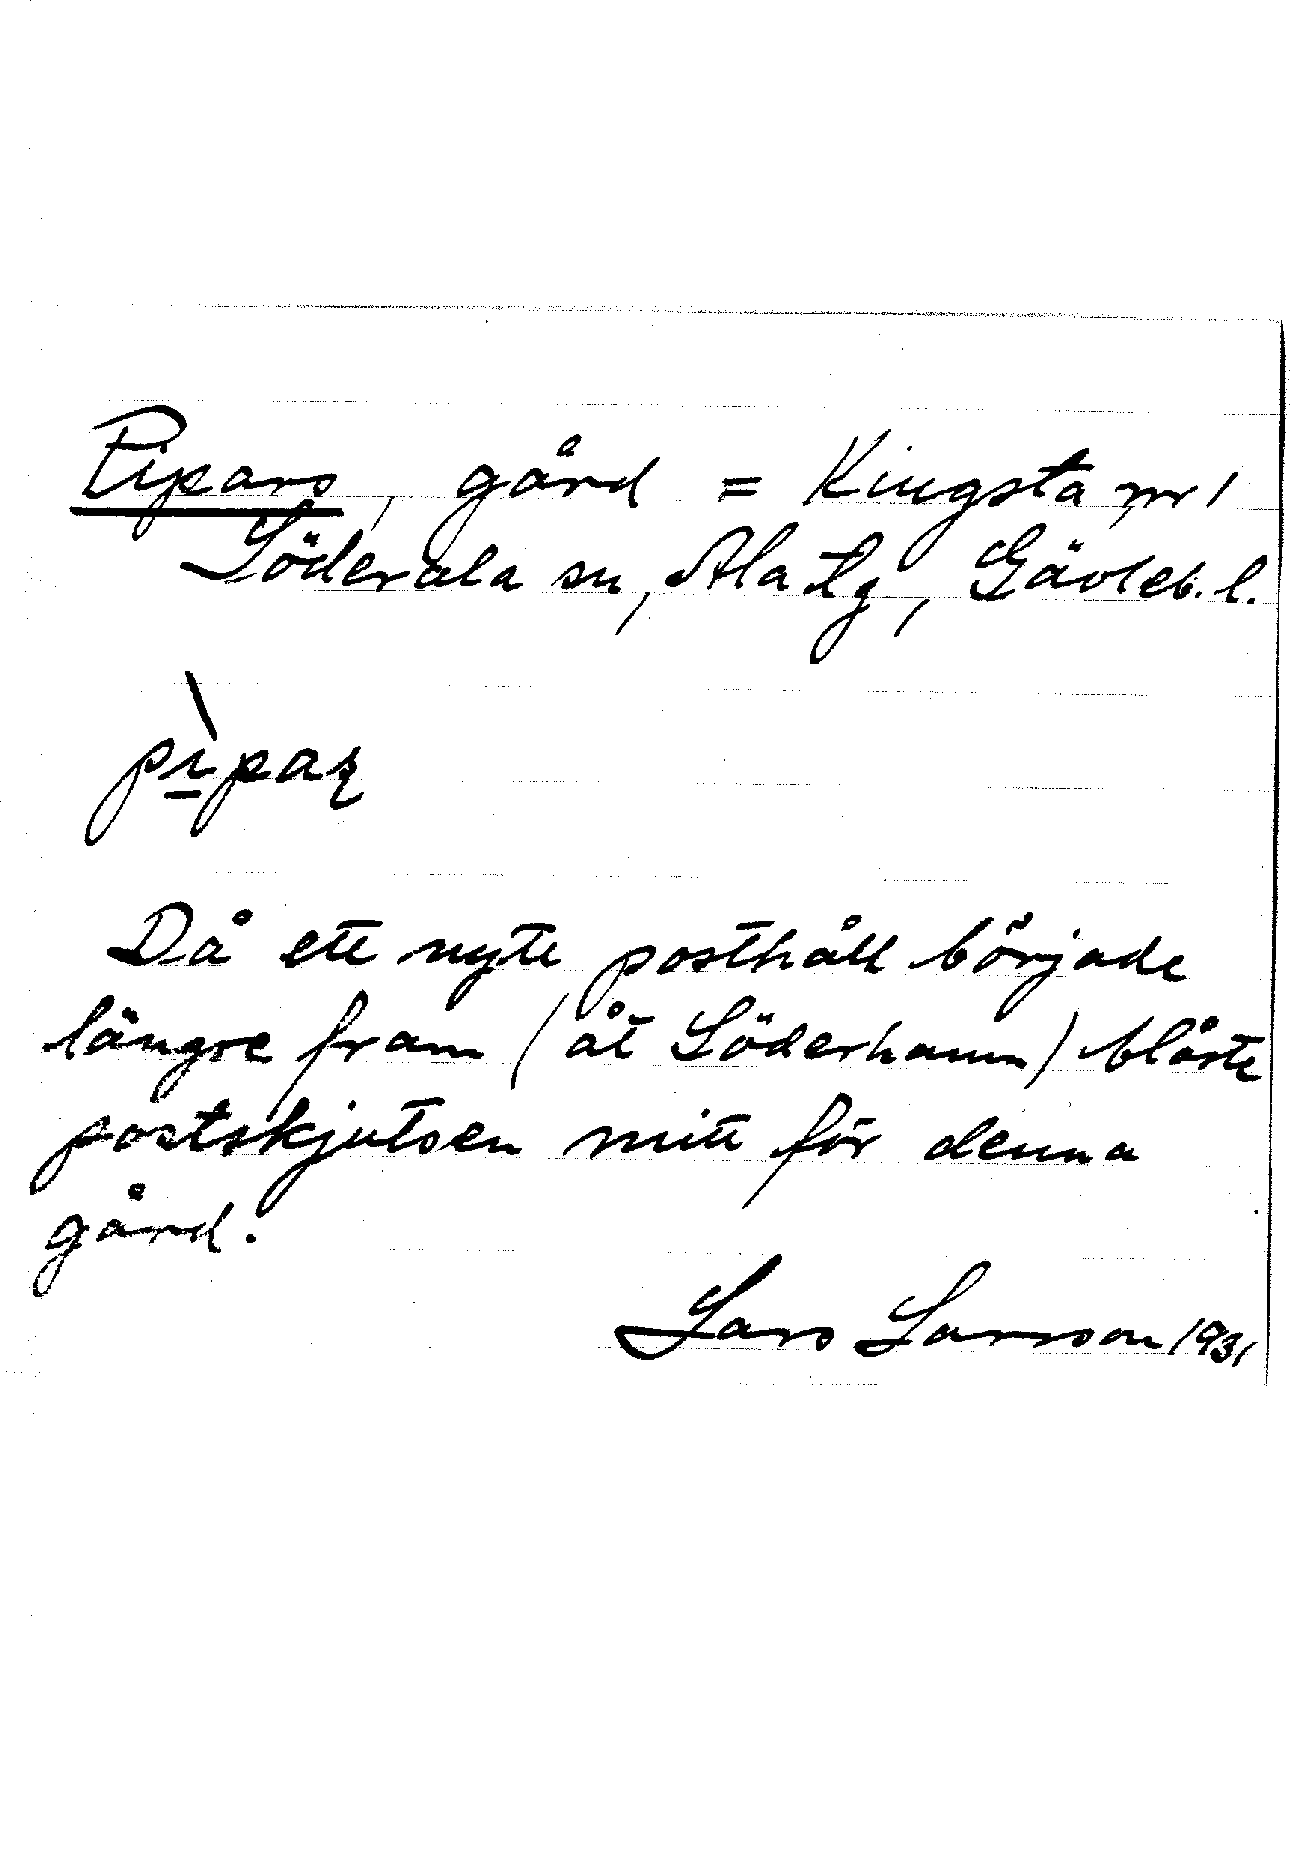 Pipars, gård = Kingsta nr 1
Söderala sn, Ala tg, Gävleb. l.
pìpaʂ
Då ett nytt posthåll började
längre fram (åt Söderhamn) blåste
postskjutsen mitt för denna
gård.
Lars Larsson 1931